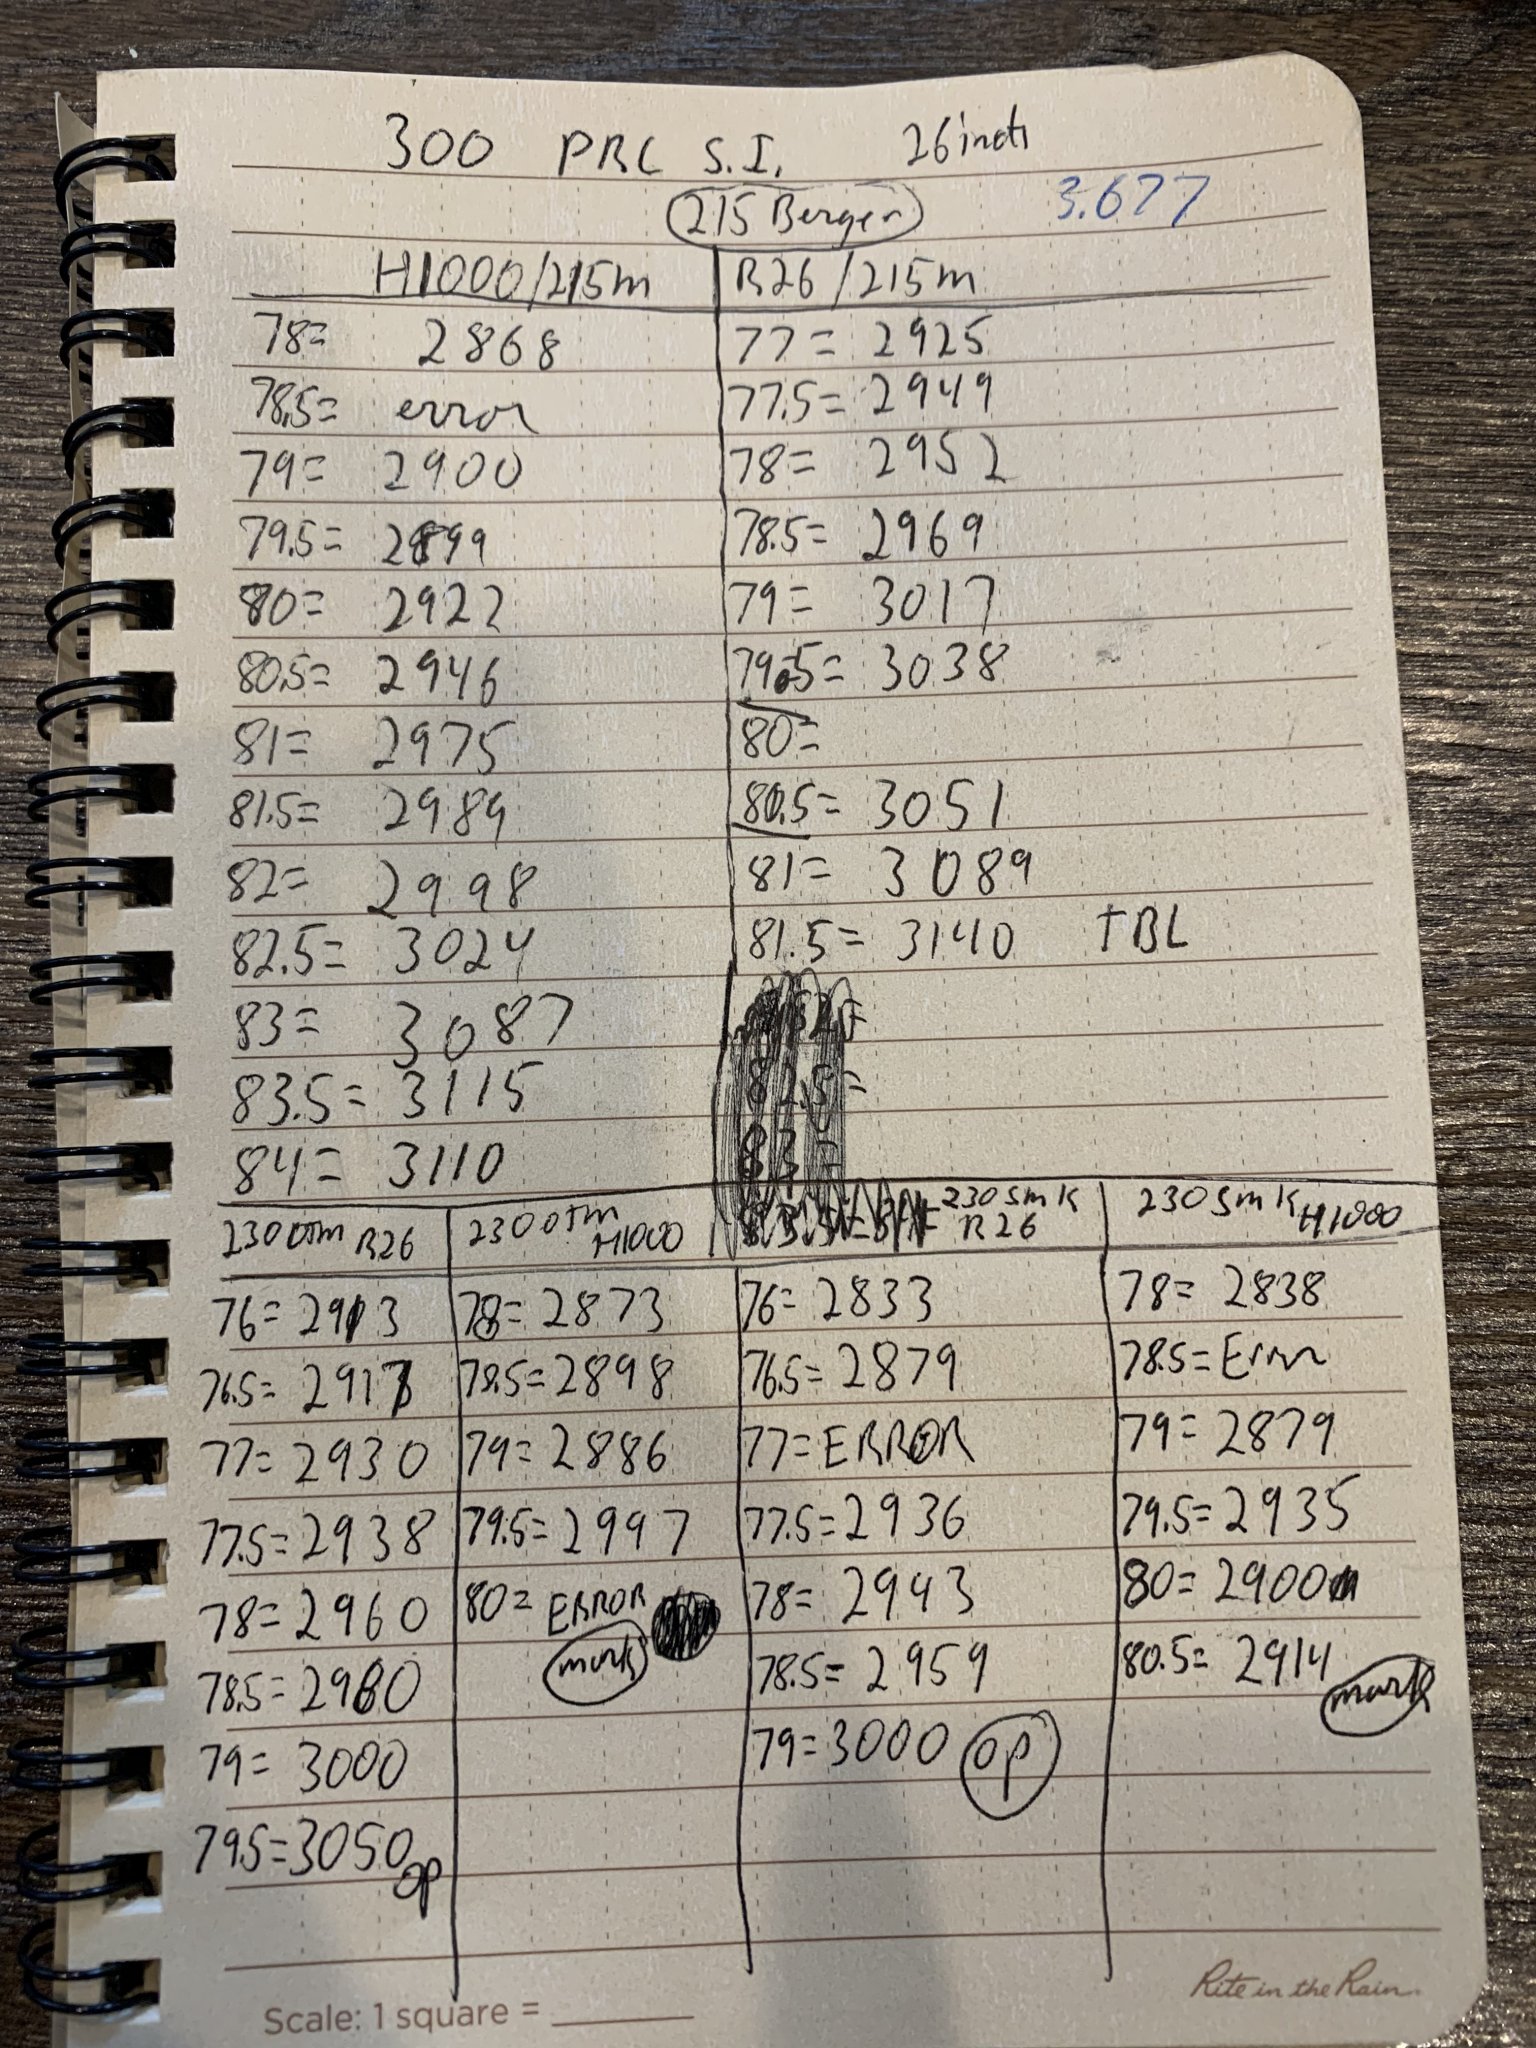 300 PRC S.I. 26 inch
215 Berger 3.677
H1000/215m R26/215m
78= 2868 77= 2925
78.5= error 77.5= 2949
79= 2900 78= 2952
79.5= 2899 78.5= 2969
80= 2922 79= 3017
80.5= 2946 79.5= 3038
81= 2975 80=
81.5= 2989 80.5= 3051
82= 2998 81= 3089
82.5= 3024 81.5= 3140 TBL
83= 3087
83.5= 3115 82.5=
84= 3110 83=
230 otm R26 230 otm H1000 230 smk R26 230 smk H1000
76= 2913 78= 2873 76= 2833 78= 2838
76.5= 2917 78.5= 2898 76.5= 2879 78.5= Error
77= 2930 79= 2886 77= ERROR 79= 2879
77.5= 2938 79.5= 2997 77.5= 2936 79.5= 2935
78= 2960 80= ERROR 78= 2943 80= 2900
78.5= 2980 mark 78.5= 2959 80.5= 2914 mark
79= 3000 79= 3000 op
79.5= 3050 op
Rite in the Rain
Scale: 1 square =